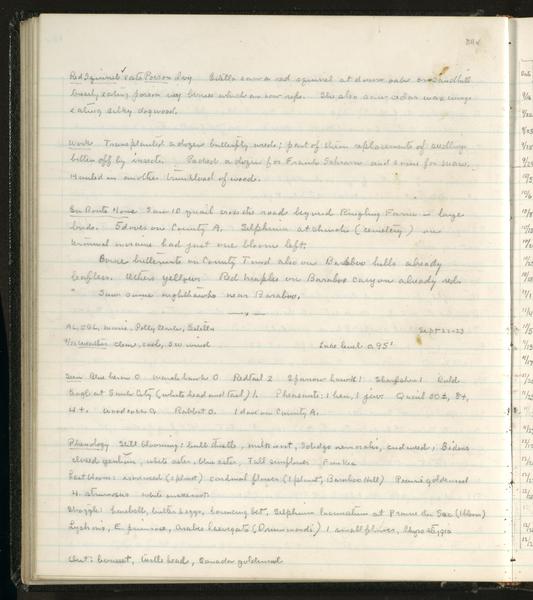 Red Squirrel eats Poison Ivy Estella saw a red squirrel at down oak on Sandhill
busily eating poison ivy berries which are now ripe. She also saw cedar wax wings
eating silky dogwood.
Work Transplanted a dozen butterfly weeds; part of them replacements of seedlings
bitten off by insects. Packed a dozen for Frank Schramm and some for
Hauled in another trunkload of wood.
En Route Home Saw 10 quail cross the road beyond Ringling Farm - large
birds. 5 doves on County A. Silphium at church (cemetery) on
terminal moraine had just one bloom left.
Some butternuts on County T and also on Baraboo hills already
leafless. Others yellow. Red maples on Baraboo canyon already red.
" Saw some nighthawks near Baraboo.
AL, Marie, Polly, Estella Sept 22-23
Weather clear, cool, SW wind Lake level 0.95'
Seen Blue heron 0 marsh hawk 0 Redtail 2 Sparrow hawk 1 Sharpshin 1 Bald
Eagle at Sauk City (white head and tail) 1. Pheasants: 1 hen, 1 juv. Quail 30±, 8+,
4+. Woodcock 0 Rabbit 0. 1 dove on County A.
Phenology Still blooming: bull thistle, milkwort, Solidago nemoralis, cudweed, Bidens
closed gentian, white aster, blue aster, Tall sunflower
Last bloom: ironweed (1 plant) cardinal flower (1 plant, Baraboo Hill) Prairie goldenrod
H. strumosus white snakeroot
Straggle: harebell, butter & eggs, bouncing bet, Silphium laciniatum at Prairie du Sac (1 bloom)
Lychnis, E. primrose, Arabis laevigata (Drummondi) 1 small flower,
Out: boneset, turtle head, Canada goldenrod